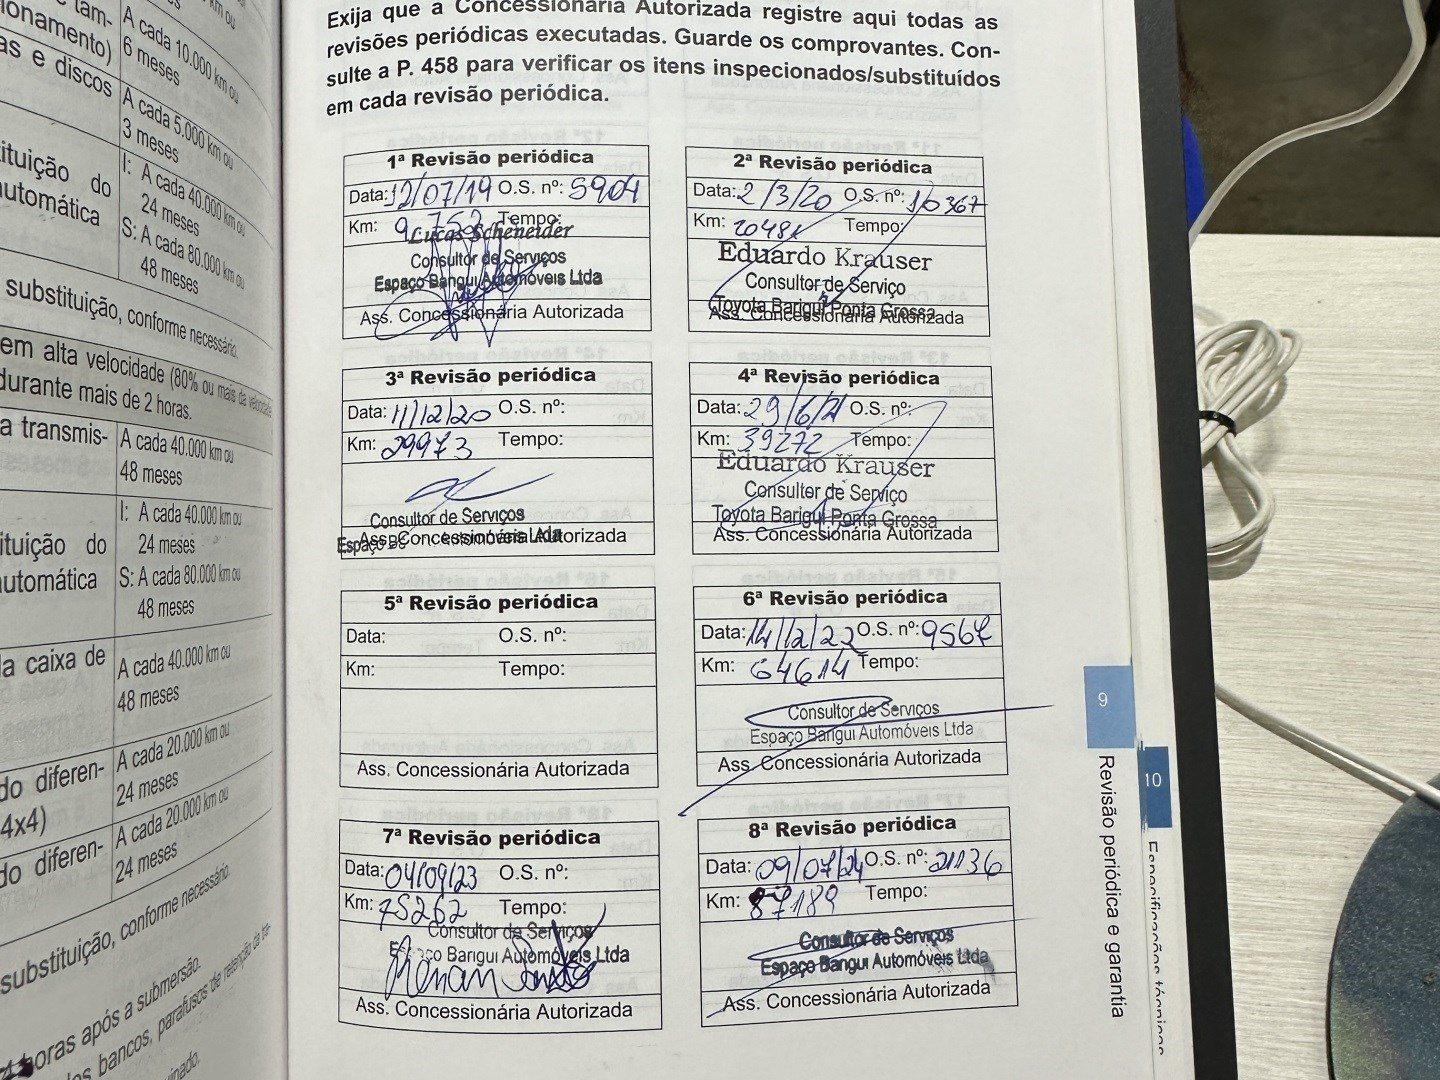 A cada 10.000 km ou
6 meses
onamento)
as e discos
A cada 5.000 km ou
3 meses
tituição do
automática
I: A cada 40.000 km ou
24 meses
S: A cada 80.000 km ou
48 meses
substituição, conforme necessário.
em alta velocidade (80% ou mais da velocidade
durante mais de 2 horas.
a transmis-
A cada 40.000 km ou
48 meses
tituição do
automática
I: A cada 40.000 km ou
24 meses
S: A cada 80.000 km ou
48 meses
la caixa de
A cada 40.000 km ou
48 meses
do diferen-
4x4)
A cada 20.000 km ou
24 meses
do diferen-
A cada 20.000 km ou
24 meses
substituição, conforme necessário.
horas após a submersão.
os bancos, parafusos de retenção da tra-
Exija que a Concessionária Autorizada registre aqui todas as
revisões periódicas executadas. Guarde os comprovantes. Con-
sulte a P. 458 para verificar os itens inspecionados/substituídos
em cada revisão periódica.
1ª Revisão periódica
Data: 12/07/19 O.S. nº: 5904
Km: 9.752 Tempo:
Lucas Scheneider
Consultor de Serviços
Espaço Barigui Automóveis Ltda
Ass. Concessionária Autorizada
2ª Revisão periódica
Data: 2/3/20 O.S. nº: 10367
Km: 20481 Tempo:
Eduardo Krauser
Consultor de Serviço
Toyota Barigui Ponta Grossa
Ass. Concessionária Autorizada
3ª Revisão periódica
Data: 11/12/20 O.S. nº:
Km: 29973 Tempo:
Consultor de Serviços
Espaço Automóveis Ltda
Ass. Concessionária Autorizada
4ª Revisão periódica
Data: 29/6/21 O.S. nº:
Km: 39272 Tempo:
Eduardo Krauser
Consultor de Serviço
Toyota Barigui Ponta Grossa
Ass. Concessionária Autorizada
5ª Revisão periódica
Data: O.S. nº:
Km: Tempo:
Ass. Concessionária Autorizada
6ª Revisão periódica
Data: 14/12/22 O.S. nº: 9567
Km: 64614 Tempo:
Consultor de Serviços
Espaço Barigui Automóveis Ltda
Ass. Concessionária Autorizada
7ª Revisão periódica
Data: 04/09/23 O.S. nº:
Km: 75262 Tempo:
Consultor de Serviços
Espaço Barigui Automóveis Ltda
Ass. Concessionária Autorizada
8ª Revisão periódica
Data: 09/07/24 O.S. nº: 21136
Km: 87189 Tempo:
Consultor de Serviços
Espaço Barigui Automóveis Ltda
Ass. Concessionária Autorizada
9
Revisão periódica e garantia
10
Especificações técnicas